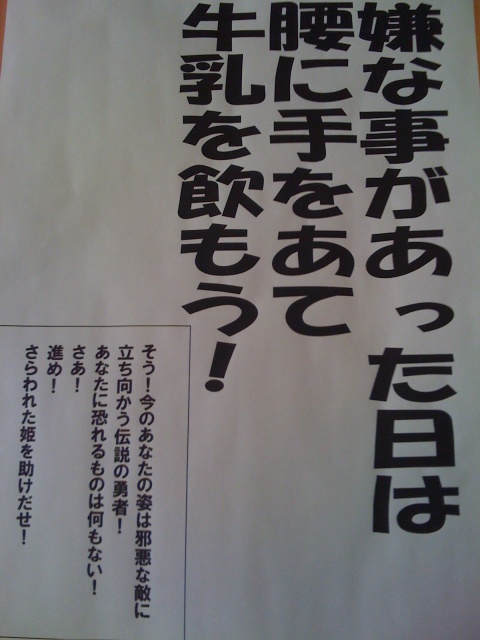 嫌な事があった日は
腰に手をあて
牛乳を飲もう！
そう！今のあなたの姿は邪悪な敵に
立ち向かう伝説の勇者！
あなたに恐れるものは何もない！
さあ！
進め！
さらわれた姫を助けだせ！